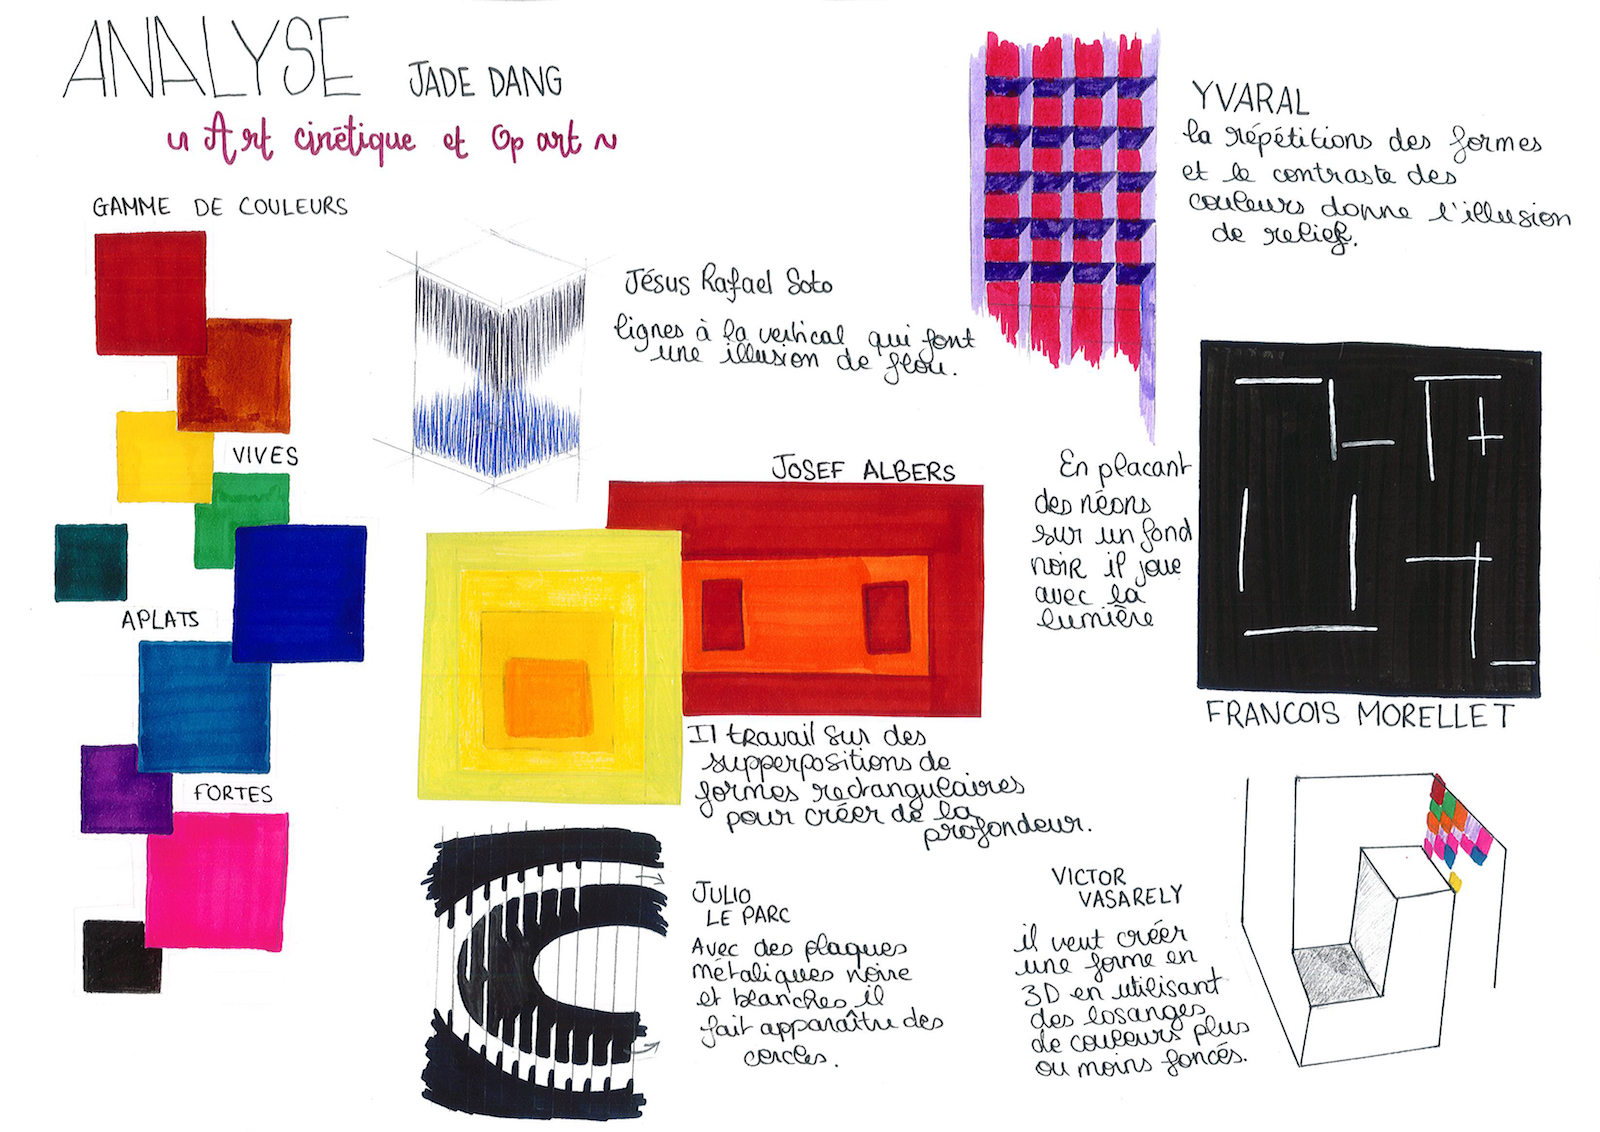 ANALYSE JADE DANG
~ Art cinétique et Op art ~
GAMME DE COULEURS
VIVES
APLATS
FORTES
Jésus Rafael Soto
lignes à la vertical qui font
une illusion de flou.
YVARAL
la répétitions des formes
et le contraste des
couleurs donne l'illusion
de relief.
JOSEF ALBERS
Il travail sur des
supperpositions de
formes rectangulaires
pour créer de la
profondeur.
En placant
des néons
sur un fond
noir il joue
avec la
lumière
FRANCOIS MORELLET
JULIO
LE PARC
Avec des plaques
métaliques noire
et blanches il
fait apparaître des
cercles.
VICTOR
VASARELY
il veut créer
une forme en
3D en utilisant
des losanges
de couleurs plus
ou moins foncés.